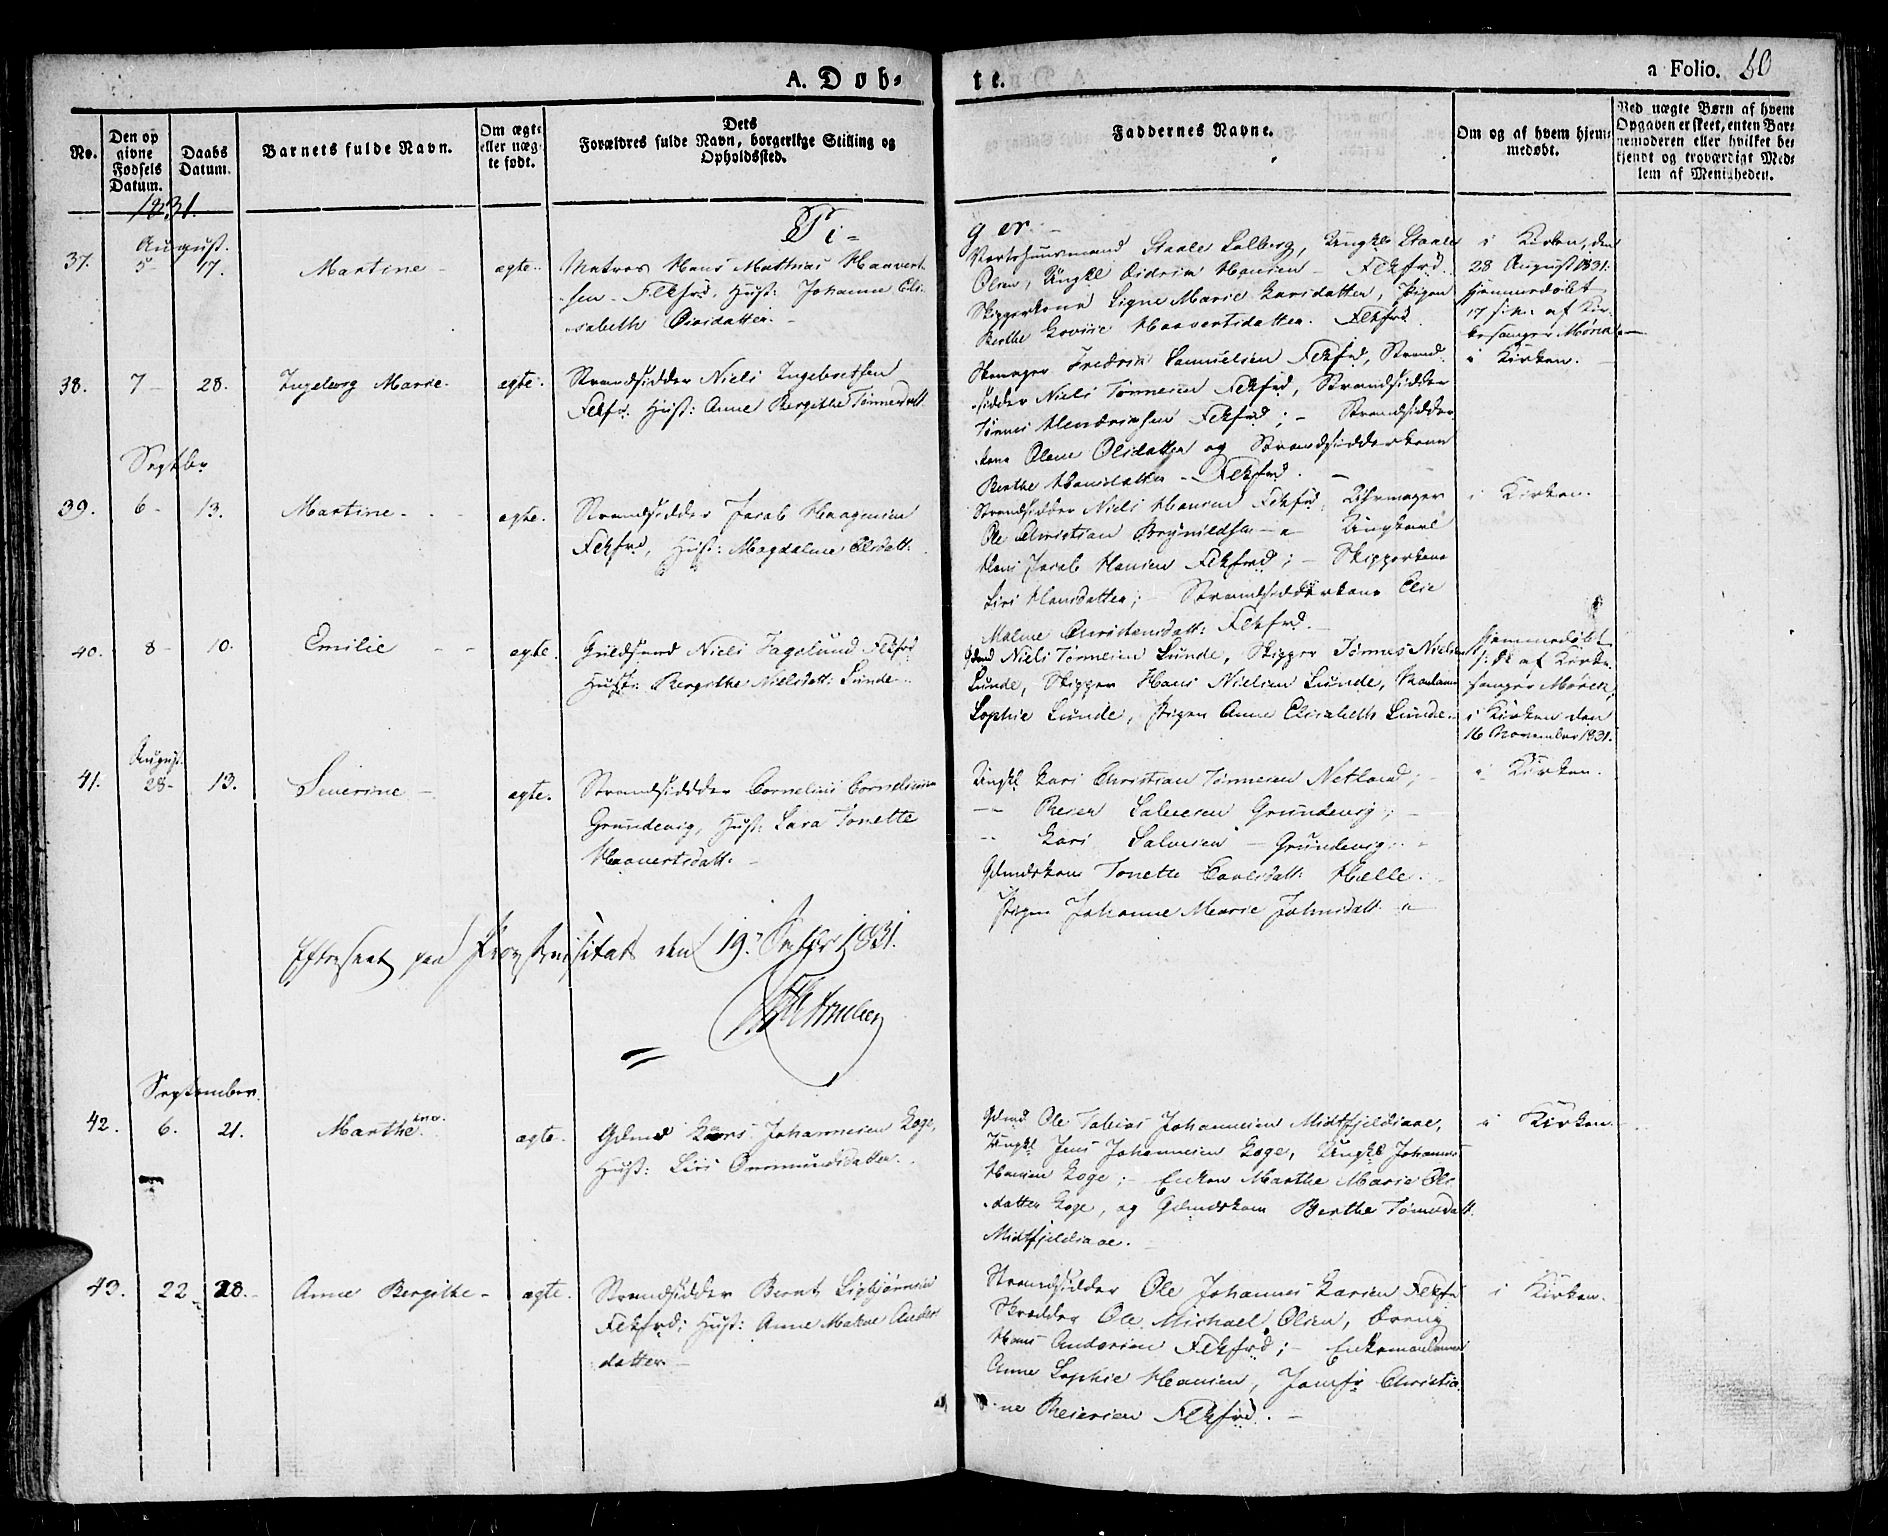 A. Døb-
te.
a Folio. 50
No.
Den op
givne
Fødsels
Datum.
Daabs
Datum.
Barnets fulde Navn.
Om ægte
eller næg-
te født.
Dets
Forældres fulde Navn, borgerlige Stilling og
Opholdssted.
Faddernes Navne.
Om og af hvem hjem-
medøbt.
Ved uægte Børn af hvem
Opgaven er skeet, enten Bar-
nemoderen eller hvilket be-
kjendt og troværdigt Med-
lem af Menigheden.
1831.
Pi-
ger.
August.
37. 5- 17. Martine - ægte.
Matros Hans Mathias Haavert-
sen Flekfrd, Hust: Johanne Eli-
sabeth Eivisdatter.
Staale Solberg, Ungkl Staale
Olsen, Ungkl Didrik Hansen - Flekfrd.
Skipperkone Signe Marie Larsdatter, Pigen
Berthe Govine Haavertsdatter. Flekfrd.
i Kirken, den
28 August 1831.
hjemmedøbt
17 s. m. af Kir-
kesanger Mörch
38. 7- 28. Ingeborg Marie. ægte.
Strandsidder Niels Ingebretsen
Flekfrd. Hust: Anne Bergithe Tønnesdatt.
Fredrik Samuelsen Flekfrd, Strand-
sidder Niels Tønnesen Flekfrd, Strandsidder
Tønnes Hendriksen Flekfrd; - Strandsidder
kone Olene Olsdatter og Strandsidderkone
Berthe Hansdatter - Flekfrd.
i Kirken.
Septbr
39. 6- 13. Martine - ægte.
Strandsidder Jacob Haagensen
Flekfrd, Hust: Magdalene Olsdatt.
Strandsidder Niels Hansen Flekfrd, Uhrmager
Ole Christian Brynildsen - Ungkarl
Hans Jacob Hansen Flekfrd; - Skipperkone
Siri Hansdatter; - Strandsidderkone Elie
Malene Christensdatt: Flekfrd.
i Kirken.
40. 8- 10. Emilie - - ægte.
Guldsmed Niels Fagelund Flekfrd
Hustr: Bergithe Nielsdatt: Lunde.
Gdmd Niels Tønnesen Lunde, Skipper Tønnes Nielsen
Lunde, Skipper Hans Nielsen Lunde, Madame
Sophie Lunde, Pigen Anne Elisabeth Lunde.
hjemmedøbt
af Kirke-
sanger Mörch,
i Kirken den
16 November 1831.
August.
41. 28- 13. Severine - ægte.
Strandsidder Cornelius Corneliusen
Grundevig, Hust: Sara Tonette
Haavertsdatt. -
Ungkl Lars Christian Tønnesen Netland; -
-"- Reier Salvesen Grundevig; -
-"- Lars Salvesen - Grundevig.
Gdmdskone Tonette Carlsdatt: Hælle.
Pigen Johanne Marie Johnsdatt. "
i Kirken.
Efterseet paa Provstevisitats den 19. Septbr 1831.
September.
42. 6. 21. Marthe ægte.
Gdmd Lars Johannesen Loge,
Hust: Siri Omundsdatter.
Gdmd Ole Tobias Johannesen Midtfjeldsaae,
Ungkl Jens Johannesen Loge, Ungkl Johannes
Hansen Loge; - Enken Marthe Marie Ols-
datter Loge, og Gdmdskone Berthe Tønnesdatt.
Midtfjeldsaae.
i Kirken.
43. 22 28. Anne Bergithe - ægte.
Strandsidder Bernt Sigbjørnsen
Flekfrd; Hust: Anne Malene Anders
datter.
Strandsidder Ole Johannes Larsen Flekfrd
Skrædder Ole Michael Olsen, Dreng
Hans Andersen Flekfrd; - Enkemadame
Anne Sophie Hansen, Jomfr Christia-
ne Reiersen Flekfrd. -
i Kirken.